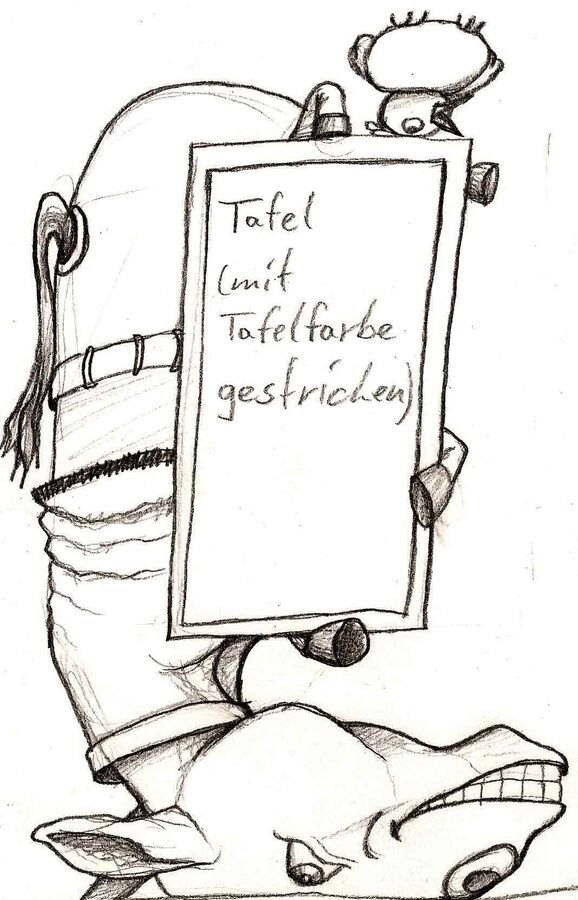 Tafel
(mit
Tafelfarbe
gestrichen)